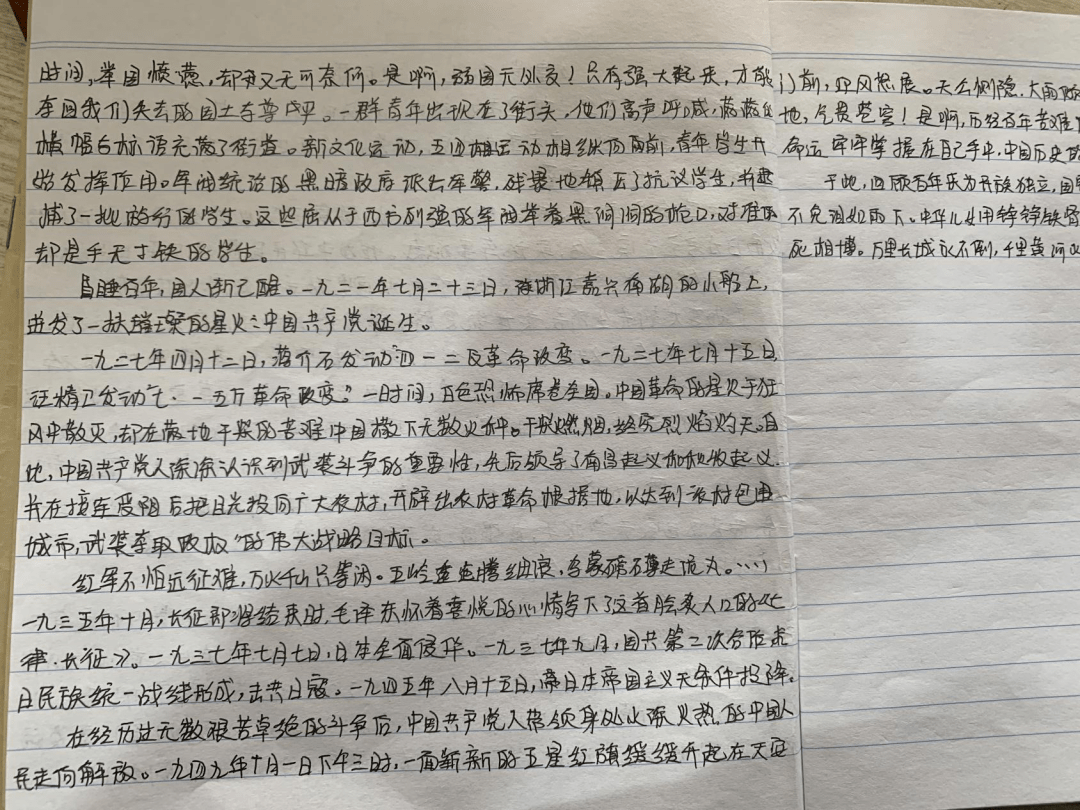 时间,举国愤慨,却又无可奈何。是啊,弱国无外交!只有强大起来,才能
夺回我们失去的国土与尊严。一群青年出现在了街头,他们高声呼喊,
横幅与标语充满了街道。新文化运动,五四运动相继,青年学生开
始发挥作用。军阀统治的黑暗政府派出军警,残暴地镇压了抗议学生,并逮
捕了一批的学生。这些屈从于西方列强的军阀举着黑洞洞的枪口,对准的
却是手无寸铁的学生。
昏睡百年,国人渐已醒。一九二一年七月二十三日,浙江嘉兴南湖的小船上,
迸发了一抹璀璨的星火:中国共产党诞生。
一九二七年四月十二日,蒋介石发动四一二反革命政变。一九二七年七月十五日,
汪精卫发动七·一五反革命政变。一时间,白色恐怖席卷全国。中国革命的星火于狂
风中散灭,却在满地干柴的苦难中国撒下无数火种。干柴燃烟,终究烈焰灼天。自
此,中国共产党人深深认识到武装斗争的重要性,先后领导了南昌起义和秋收起义,
并在接连受阻后把目光投向广大农村,开辟出农村革命根据地,以达到"农村包围
城市,武装夺取政权"的伟大战略目标。
红军不怕远征难,万水千山只等闲。五岭逶迤腾细浪,乌蒙磅礴走泥丸。……
一九三五年十月,长征即将结束时,毛泽东怀着喜悦的心情写下了这首脍炙人口的《七
律·长征》。一九三七年七月七日,日本全面侵华。一九三七年九月,国共第二次合作抗
日民族统一战线形成,击共日寇。一九四五年八月十五日,日本帝国主义无条件投降。
在经历过无数艰苦卓绝的斗争后,中国共产党人带领身处水深火热的中国人
民走向解放。一九四九年十月一日下午三时,一面新新的五星红旗缓缓升起在天安
门前,迎风招展。天公恻隐,大雨
地,告慰苍穹!是啊,历经百年苦难
命运牢牢掌握在自己手中,中国历史的
于此,回顾百年民族独立,国
不免泪如雨下。中华儿女用铮铮铁骨
死相搏。万里长城永不倒,千里黄河水